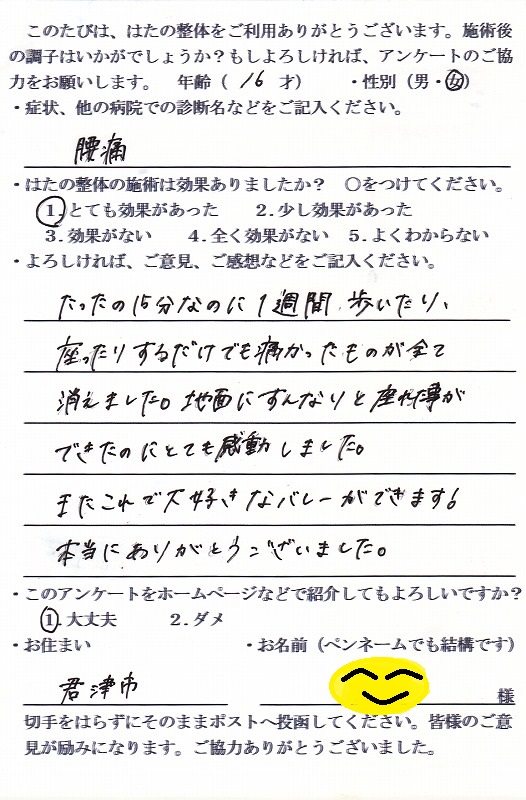 このたびは、はたの整体をご利用ありがとうございます。施術後
の調子はいかがでしょうか？もしよろしければ、アンケートのご協
力をお願いします。 年齢（ 16 才） ・性別（男・女）
・症状、他の病院での診断名などをご記入ください。
腰痛
・はたの整体の施術は効果ありましたか？ 〇をつけてください。
1.とても効果があった 2.少し効果があった
3.効果がない 4.全く効果がない 5.よくわからない
・よろしければ、ご意見、ご感想などをご記入ください。
たったの15分なのに1週間、歩いたり、
座ったりするだけでも痛かったものが全て
消えました。地面にすんなりと座れた事が
できたのにとても感動しました。
またこれで大好きなバレーができます!
本当にありがとうございました。
・このアンケートをホームページなどで紹介してもよろしいですか？
1.大丈夫 2.ダメ
・お住まい ・お名前（ペンネームでも結構です）
君津市 様
切手をはらずにそのままポストへ投函してください。皆様のご意
見が励みになります。ご協力ありがとうございました。